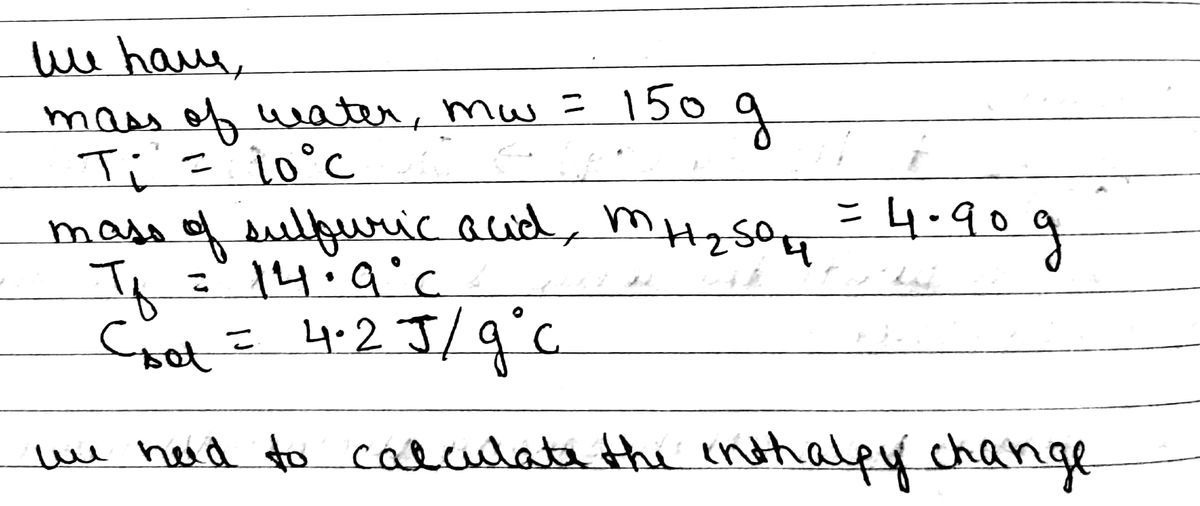 We have,
mass of water, mw = 150 g
Ti = 10°C
mass of sulfuric acid, mH₂SO₄ = 4.90 g
Tf = 14.9°C
Csol = 4.2 J/g°C
we need to calculate the enthalpy change